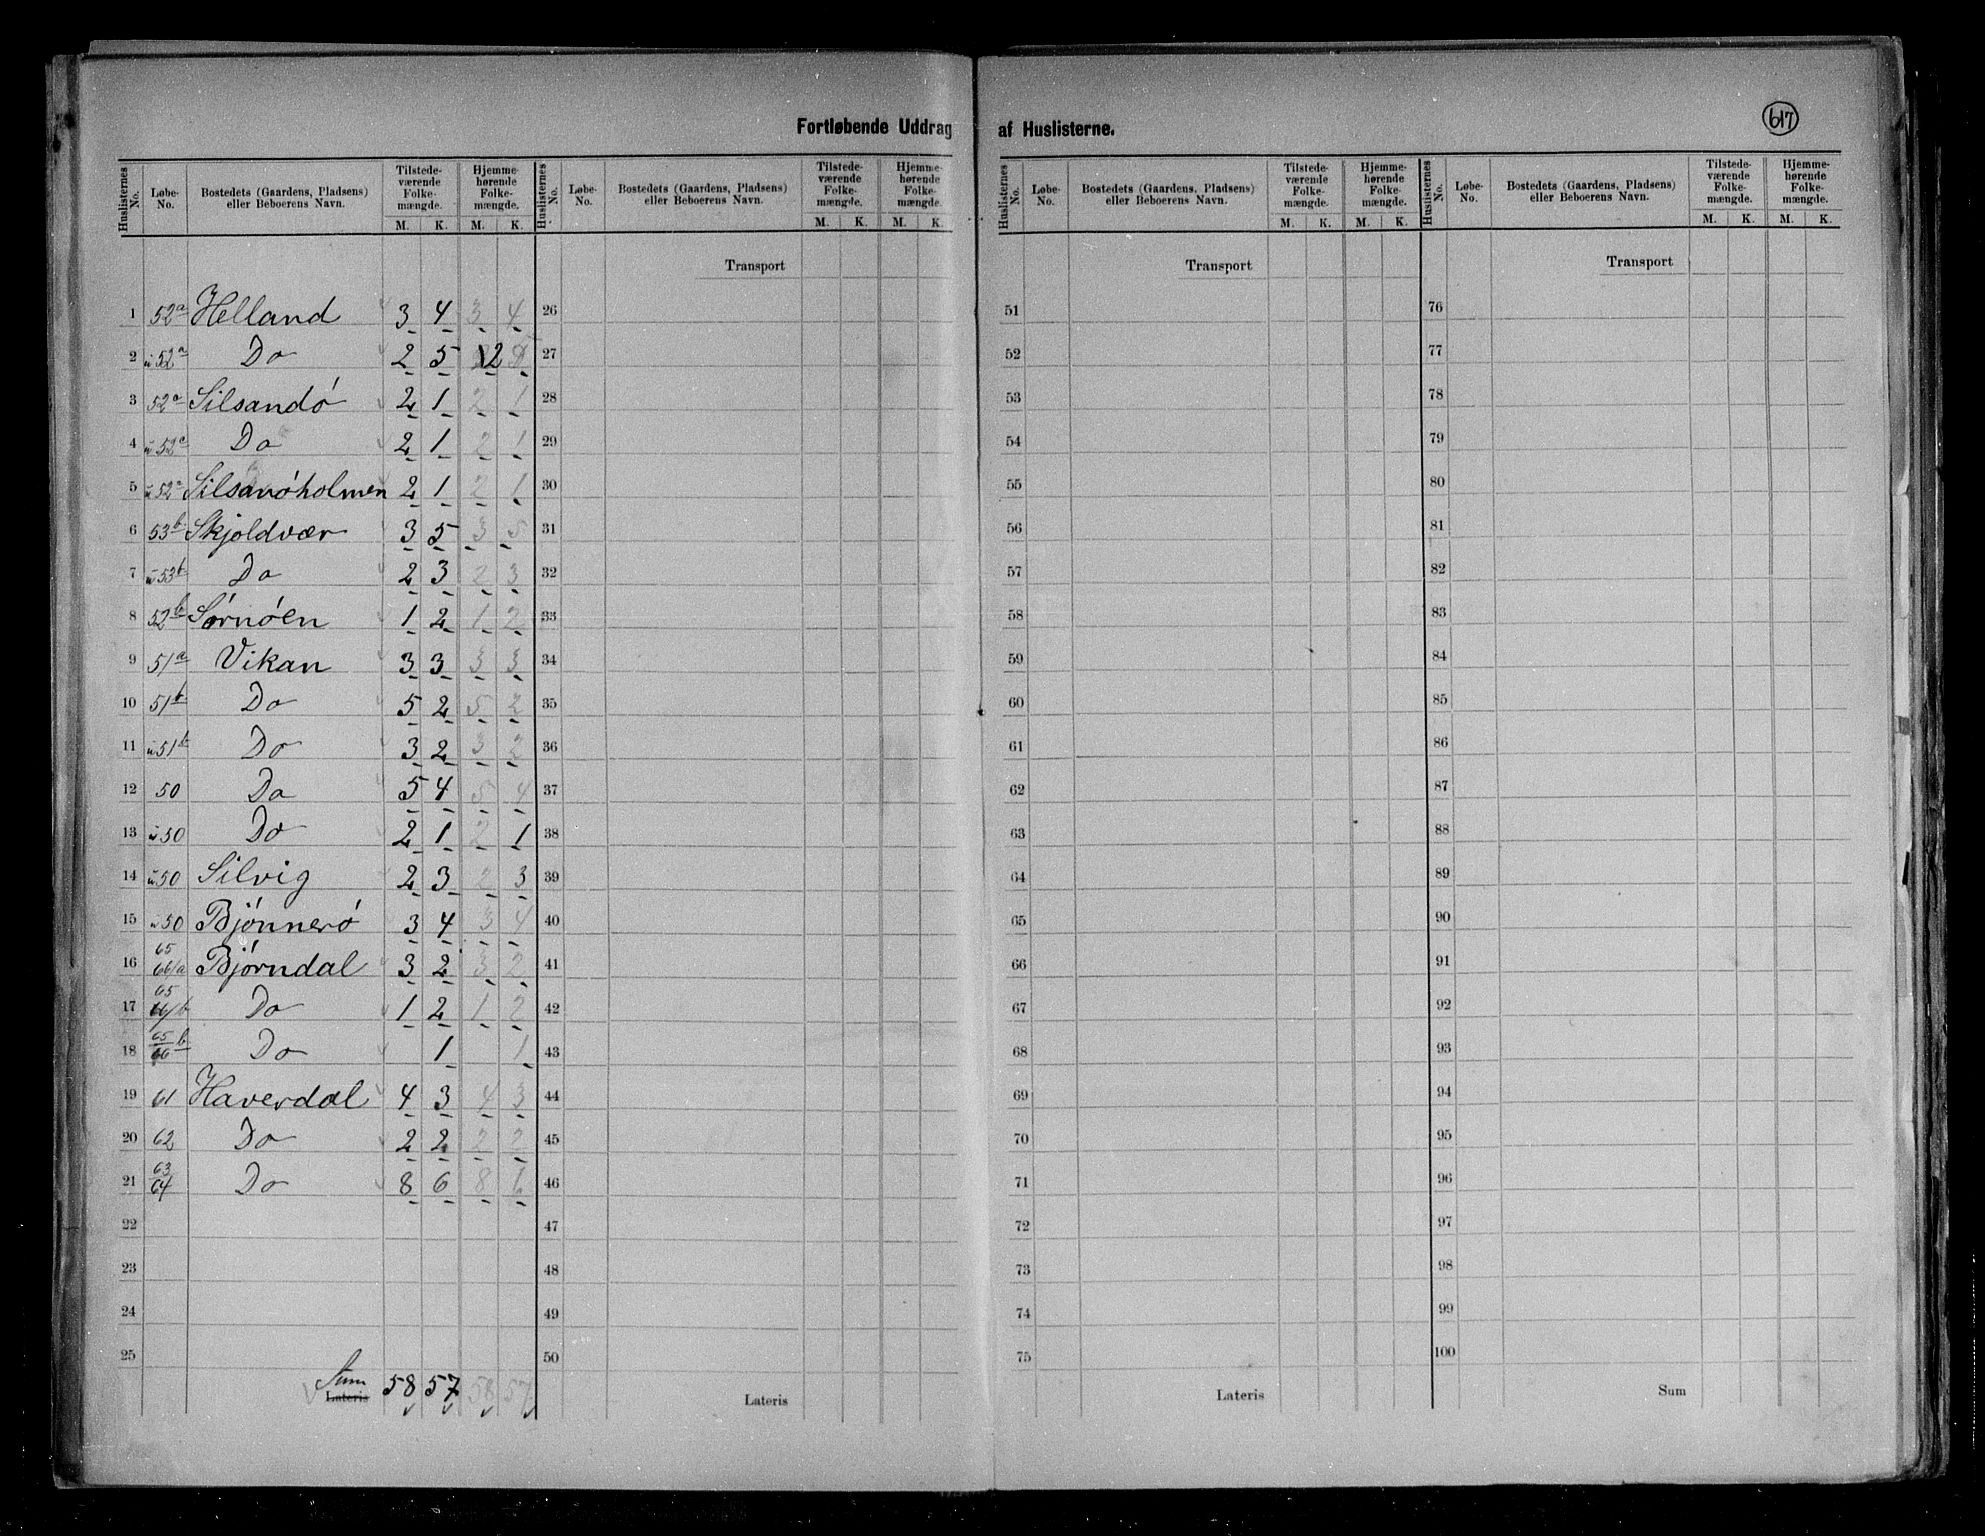 Fortløbende Uddrag af Huslisterne.
617
Huslisternes No. Løbe-No. Bostedets (Gaardens, Pladsens) eller Beboerens Navn. Tilstede-værende Folke-mængde. M. K. Hjemme-hørende Folke-mængde. M. K.
1 52a Helland 3 4 3 4
2 u 52a Do 2 5 2 5
3 52a Silsandó 2 1 2 1
4 u 52a Do 2 1 2 1
5 u 52a Silsanóholmen 2 1 2 1
6 53b Skjoldvær 3 5 3 5
7 u 53b Do 2 3 2 3
8 52b Sørnóen 1 2 1 2
9 51a Vikan 3 3 3 3
10 51b Do 5 2 5 2
11 u 51b Do 3 2 3 2
12 50 Do 5 4 5 4
13 u 50 Do 2 1 2 1
14 u 50 Silvig 2 3 2 3
15 u 50 Bjónneró 3 4 3 4
16 65 66/a Bjórndal 3 2 3 2
17 65 66/b Do 1 2 1 2
18 65/66 b Do 1 1
19 61 Haverdal 4 3 4 3
20 62 Do 2 2 2 2
21 63/64 Do 8 6 8 6
22
23
24
25
Sum Lateris 58 57 58 57
Huslisternes No. Løbe-No. Bostedets (Gaardens, Pladsens) eller Beboerens Navn. Tilstede-værende Folke-mængde. M. K. Hjemme-hørende Folke-mængde. M. K.
Transport
26
27
28
29
30
31
32
33
34
35
36
37
38
39
40
41
42
43
44
45
46
47
48
49
50
Lateris
Huslisternes No. Løbe-No. Bostedets (Gaardens, Pladsens) eller Beboerens Navn. Tilstede-værende Folke-mængde. M. K. Hjemme-hørende Folke-mængde. M. K.
Transport
51
52
53
54
55
56
57
58
59
60
61
62
63
64
65
66
67
68
69
70
71
72
73
74
75
Lateris
Huslisternes No. Løbe-No. Bostedets (Gaardens, Pladsens) eller Beboerens Navn. Tilstede-værende Folke-mængde. M. K. Hjemme-hørende Folke-mængde. M. K.
Transport
76
77
78
79
80
81
82
83
84
85
86
87
88
89
90
91
92
93
94
95
96
97
98
99
100
Sum